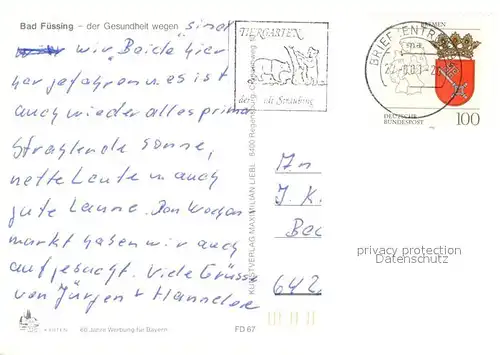 Bad Füssing – der Gesundheit wegen "sind
wir "Beide hier
her gefahren u. es ist
auch wieder alles prima
Strahlende Sonne,
nette Leute u. auch
gute Laune. Den Wochen
markt haben wir auch
aufgesucht. Viele Grüsse
von Jürgen + Hannelore
KARTEN 60 Jahre Werbung für Bayern FD 67
KUNSTVERLAG MAXIMILIAN LIEBL · 8400 Regensburg
TIERGARTEN
Straubing
BRIEFZENTRUM
BREMEN
DEUTSCHE
BUNDESPOST
100
An
J. K.
642
privacy protection
Datenschutz